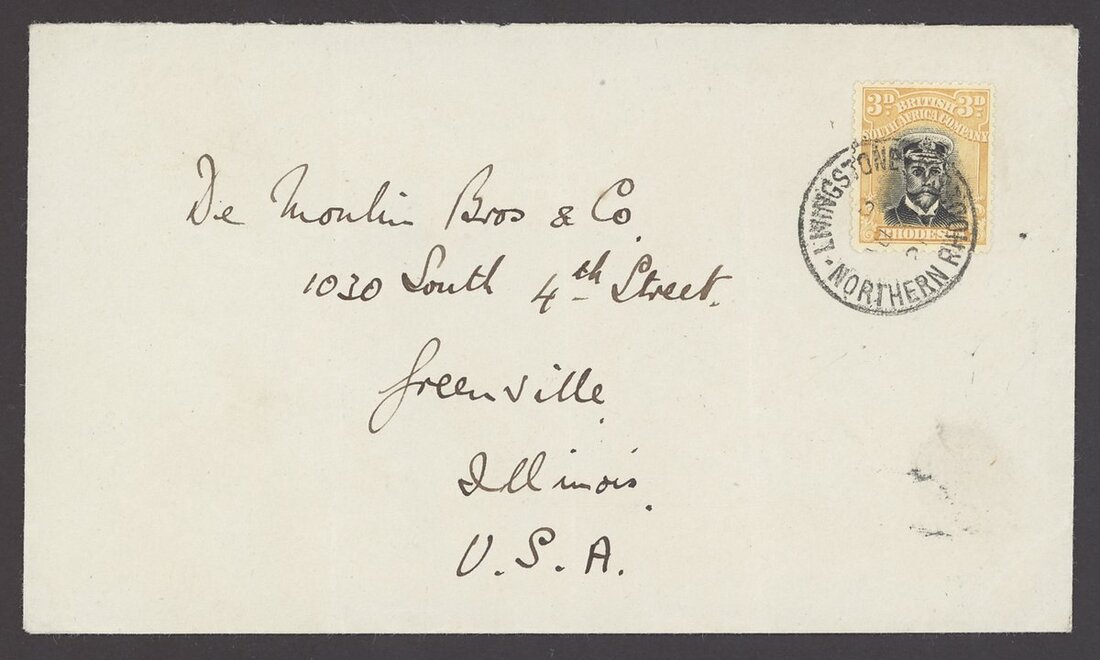 3D BRITISH 3D
SOUTH AFRICA COMPANY
RHODESIA
LIVINGSTONE
NORTHERN RHOD
De Moulin Bros & Co.
1030 South 4th Street.
Greenville
Illinois.
U.S.A.